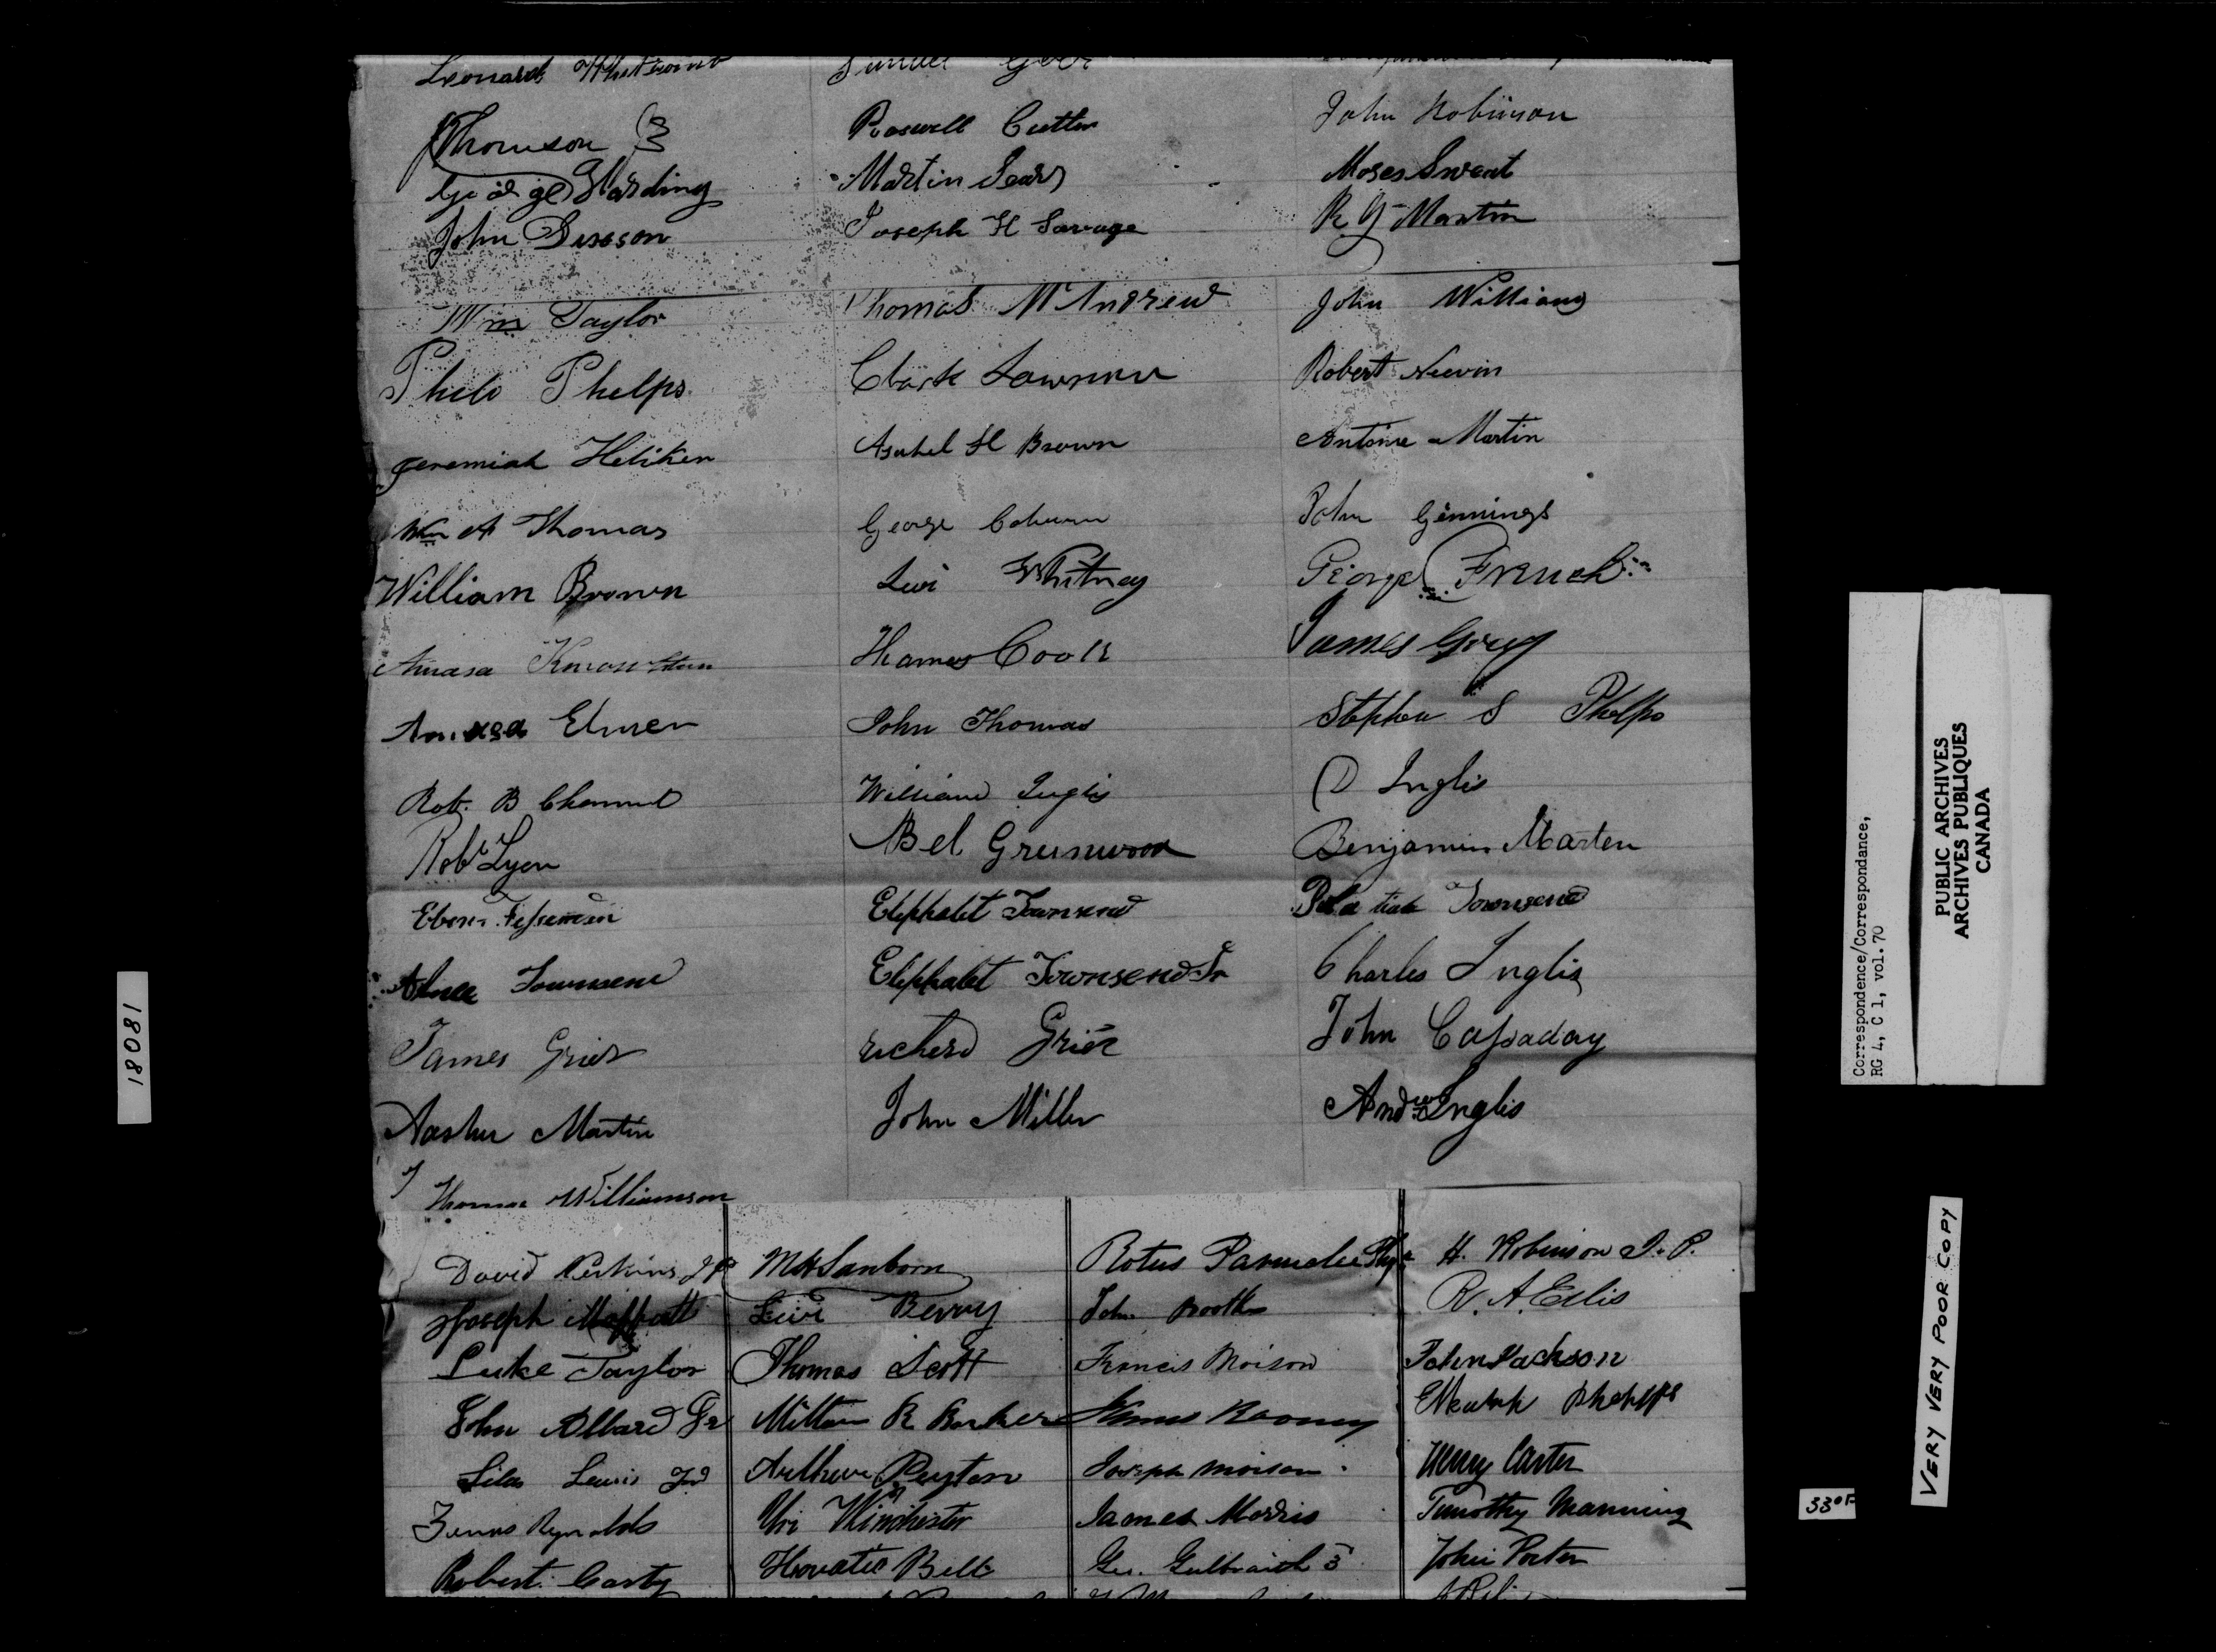 Leonard
John Robinson
Thomson
Roswell Cutter
George Harding
Martin Sears
Moses Sweat
John Sisson
Joseph H Savage
R G Martin
Wm Taylor
Thomas McAndrew
John Williams
Philo Phelps
Clark Lawrence
Robert Neevin
Jeremiah Heliker
Asahel H Brown
Antoine Martin
Wm A Thomas
George Coburn
John Ginnings
William Brown
Levi Whitney
George French
Amasa
Thomas Cook
James Grey
Amasa Elmer
John Thomas
Stephen S Phelps
Rob. B
William Inglis
D Inglis
Robt Lyon
Abel Greenwood
Benjamin Marten
Eben. Fessenden
Eliphalet Townsend
Townsend
Townsend
Eliphalet Townsend Jr
Charles Inglis
James Grier
richerd Grier
John Cassaday
Aashur Martin
John Miller
Andrew Inglis
Thomas Williamson
David Perkins JP
M H Sanborn
Rotus Parmelee
H. Robinson J. P.
Joseph Moffatt
Levi Berry
John Booth
R. A. Ellis
Luke Taylor
Thomas Scott
Francis Moison
John Jackson
John Allard Jr
Milton R Barker
James Rooney
Phelps
Silas Lewis Jr
Peyton
Joseph moison
Henry Carter
Zenas Reynolds
Uri Winchester
James Morris
Timothy Manning
Robert Carty
Horatio Bell
Geo. Gulbraith
John Porter
18081
Correspondence/Correspondance,
RG 4, C 1, vol. 70
PUBLIC ARCHIVES
ARCHIVES PUBLIQUES
CANADA
VERY VERY POOR COPY